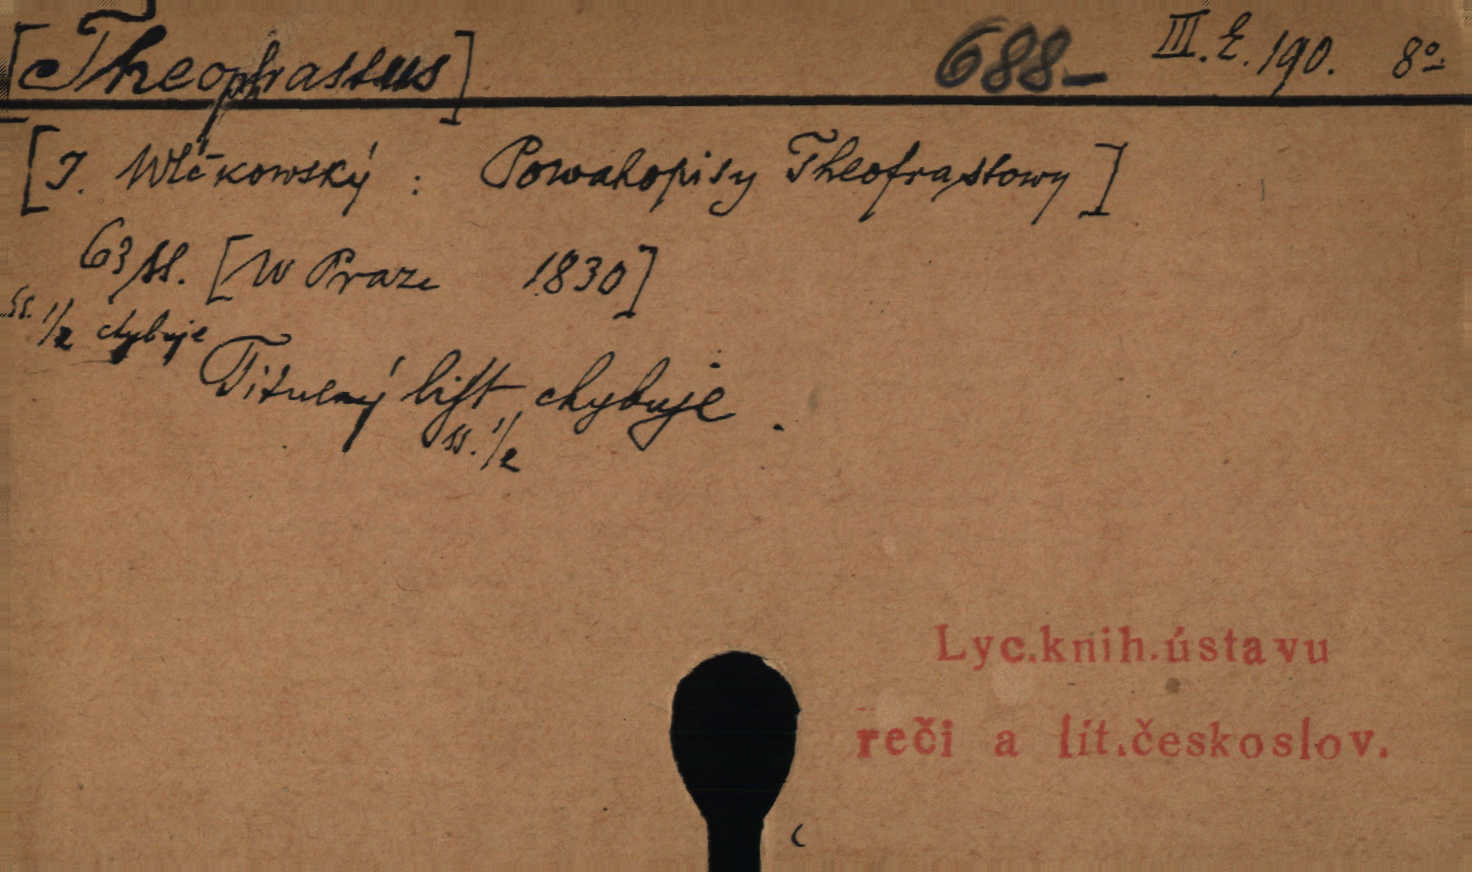 [Theophrastus] 688- III.E.190. 8º
[J. Wlčkowský : Powahopisy Theofrastowy]
63 ss. [W Praze 1830]
ss. 1/2 chybuje
Titulný list chybuje.
ss. 1/2
Lyc.knih.ústavu
reči a lit.českoslov.